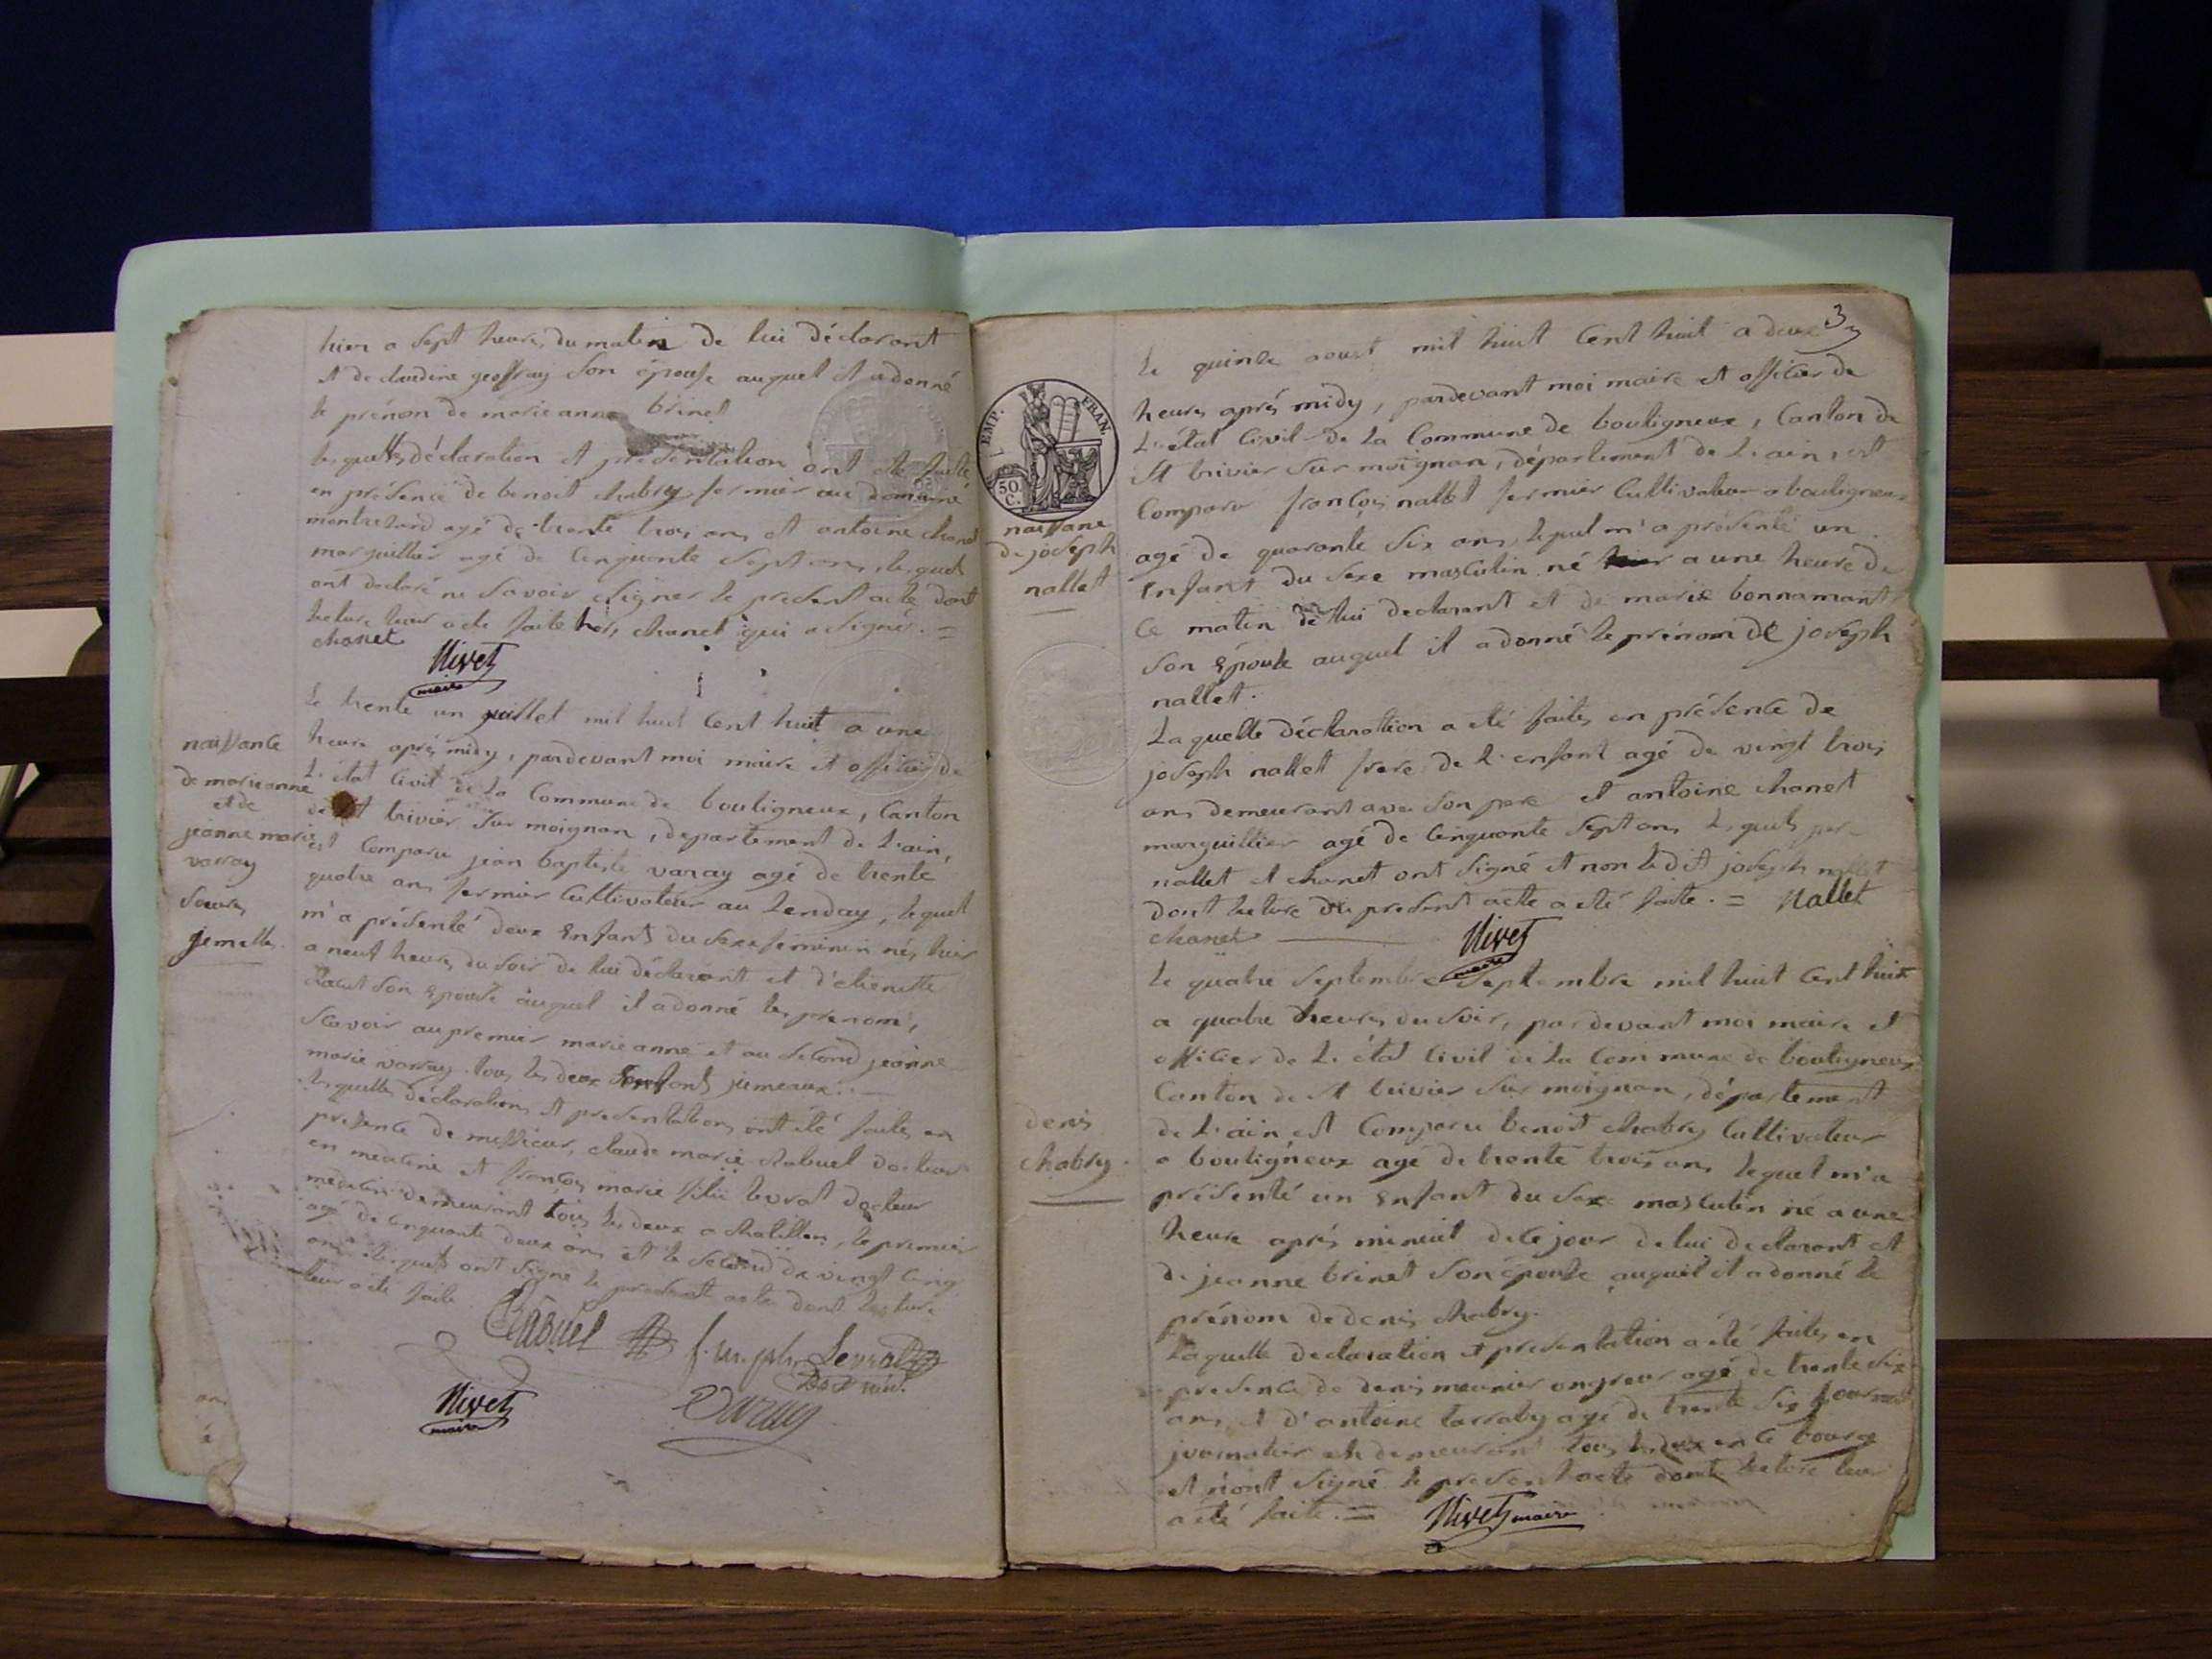 hier a sept heures du matin de lui déclarant
et de claudine geoffray son épouse auquel il a donné
le prénom de marie anne brinet
lesquelles déclaration et présentation ont été faites
en présence de benoit chabry fermier au domaine
agé de trente trois ans et antoine chanet
marguillier agé de cinquante sept ans, lesquels
ont declaré ne savoir signer le present acte dont
lecture leur a été faite chanet qui a signé. =
chanet
Nivet
maire
naissance
de marieanne
et de
jeanne marie
varray
soeures
jemelles.
Le trente un juillet mil huit cent huit a une
heure après midy, pardevant moi maire et officier de
L'état civil de la Commune de bouligneux, Canton
de st trivier sur moignan, departement de L'ain,
est comparu jean baptiste varay agé de trente
quatre ans fermier Cultivateur au Lenday, lequel
m'a présenté deux Enfants du sexe feminin nés hier
a neuf heures du soir de lui déclarant et d'etienette
son Epouse auquel il a donné les prenoms,
scavoir au premier marie anne et au second jeanne
marie varray tous les deux Enfants jumeaux. —
lesquelles déclarations et presentations ont été faites en
presence de messieurs, claude marie Chabuel docteur
en medecine et françois marie levrat docteur
medecin demeurant tous les deux a chatillon, le premier
agé de cinquante deux ans et le second de vingt cinq
ans lesquels ont signé le present acte dont lecture
leur a été faite
Chabuel f. m. ph. Levrat
Doct méd.
Nivet
maire
Varay
3
EMP. FRAN.
50
C.
naissance
de joseph
nallet
Le quinze aoust mil huit Cent huit a deux
heures après midy, pardevant moi maire et officier de
L'état Civil de La Commune de bouligneux, Canton de
st trivier sur moignan, département de L'ain, est
Comparu françois nallet fermier Cultivateur a bouligneux
agé de quarante six ans, lequel m'a présenté un
Enfant du sexe masculin né hier a une heure de
ce matin de lui declarant et de marie bonnamant
son Epouse auquel il a donné le prénom de joseph
nallet.
Laquelle déclaration a été faites en présence de
joseph nallet frere de L'enfant agé de vingt trois
ans demeurant avec son pere et antoine chanet
marguillier agé de cinquante sept ans Lesquels
nallet et chanet ont signé et non ledit joseph nallet
dont lecture du present acte a été faite. = Nallet
chanet Nivet
maire
denis
chabry.
Le quatre septembre septembre mil huit Cent huit
a quatre heures du soir, pardevant moi maire et
officier de L'état Civil de La Commune de bouligneux
Canton de st trivier sur moignan, département
de L'ain, est Comparu benoit chabry Cultivateur
a bouligneux agé de trente trois ans lequel m'a
présenté un Enfant du sexe masculin né a une
heure après minuit de ce jour de lui declarant et
de jeanne brinet son épouse auquel il a donné le
prénom de denis chabry.
Laquelle declaration et presentation a été faites en
presence de denis meunier agé de trente six
ans et d'antoine tarraby agé de trente six
journalier demeurant tous les deux en ce bourg
et n'ont signé le present acte dont lecture leur
a été faite. = Nivet maire